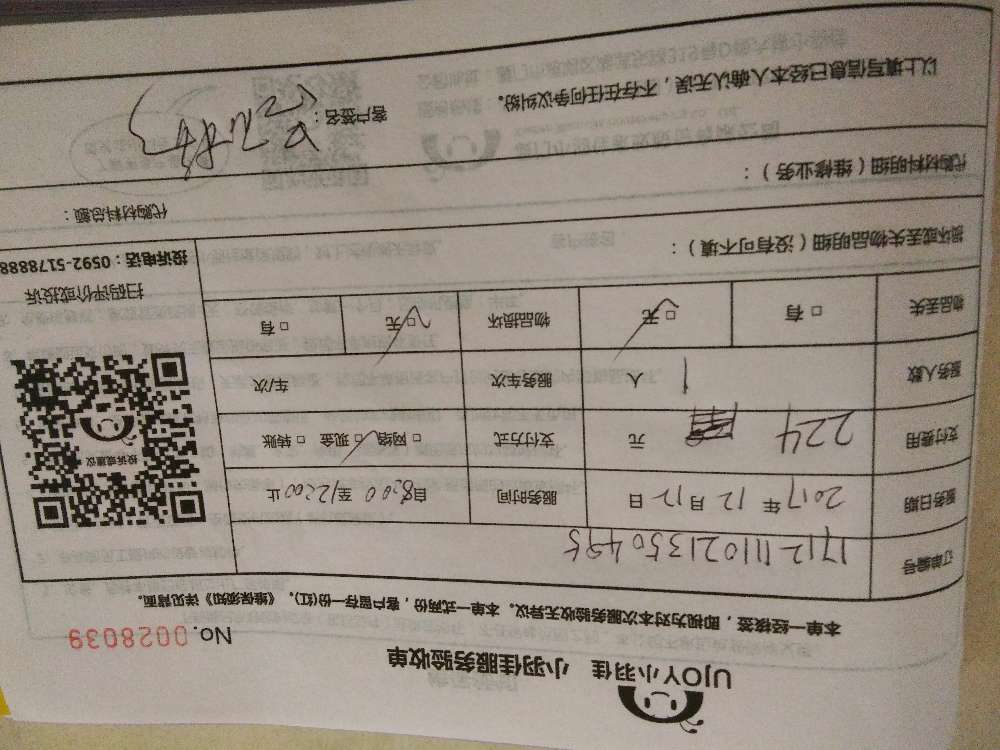 UJOY小羽佳 小羽佳服务验收单
No.0028039
本单一经核签，即视为对本次服务验收无异议。本单一式两份，客户留存一份(红)，《维保须知》详见背面。
订单编号 1712111021350495
服务日期 2017年12月12日 服务时间 自8:00至12:00止
支付费用 224 元 支付方式 □网络 □现金 □转账
服务人数 1 人 服务车次 车/次
物品丢失 □有 □无 物品损坏 □无 □有
投诉或建议
扫码评价或投诉
投诉电话：0592-5178888
损坏或丢失物品明细（没有可不填）：
代购材料明细（维修业务）： 代购材料总额：
以上填写信息已经本人确认无误，不存在任何争议纠纷。 客户签名：